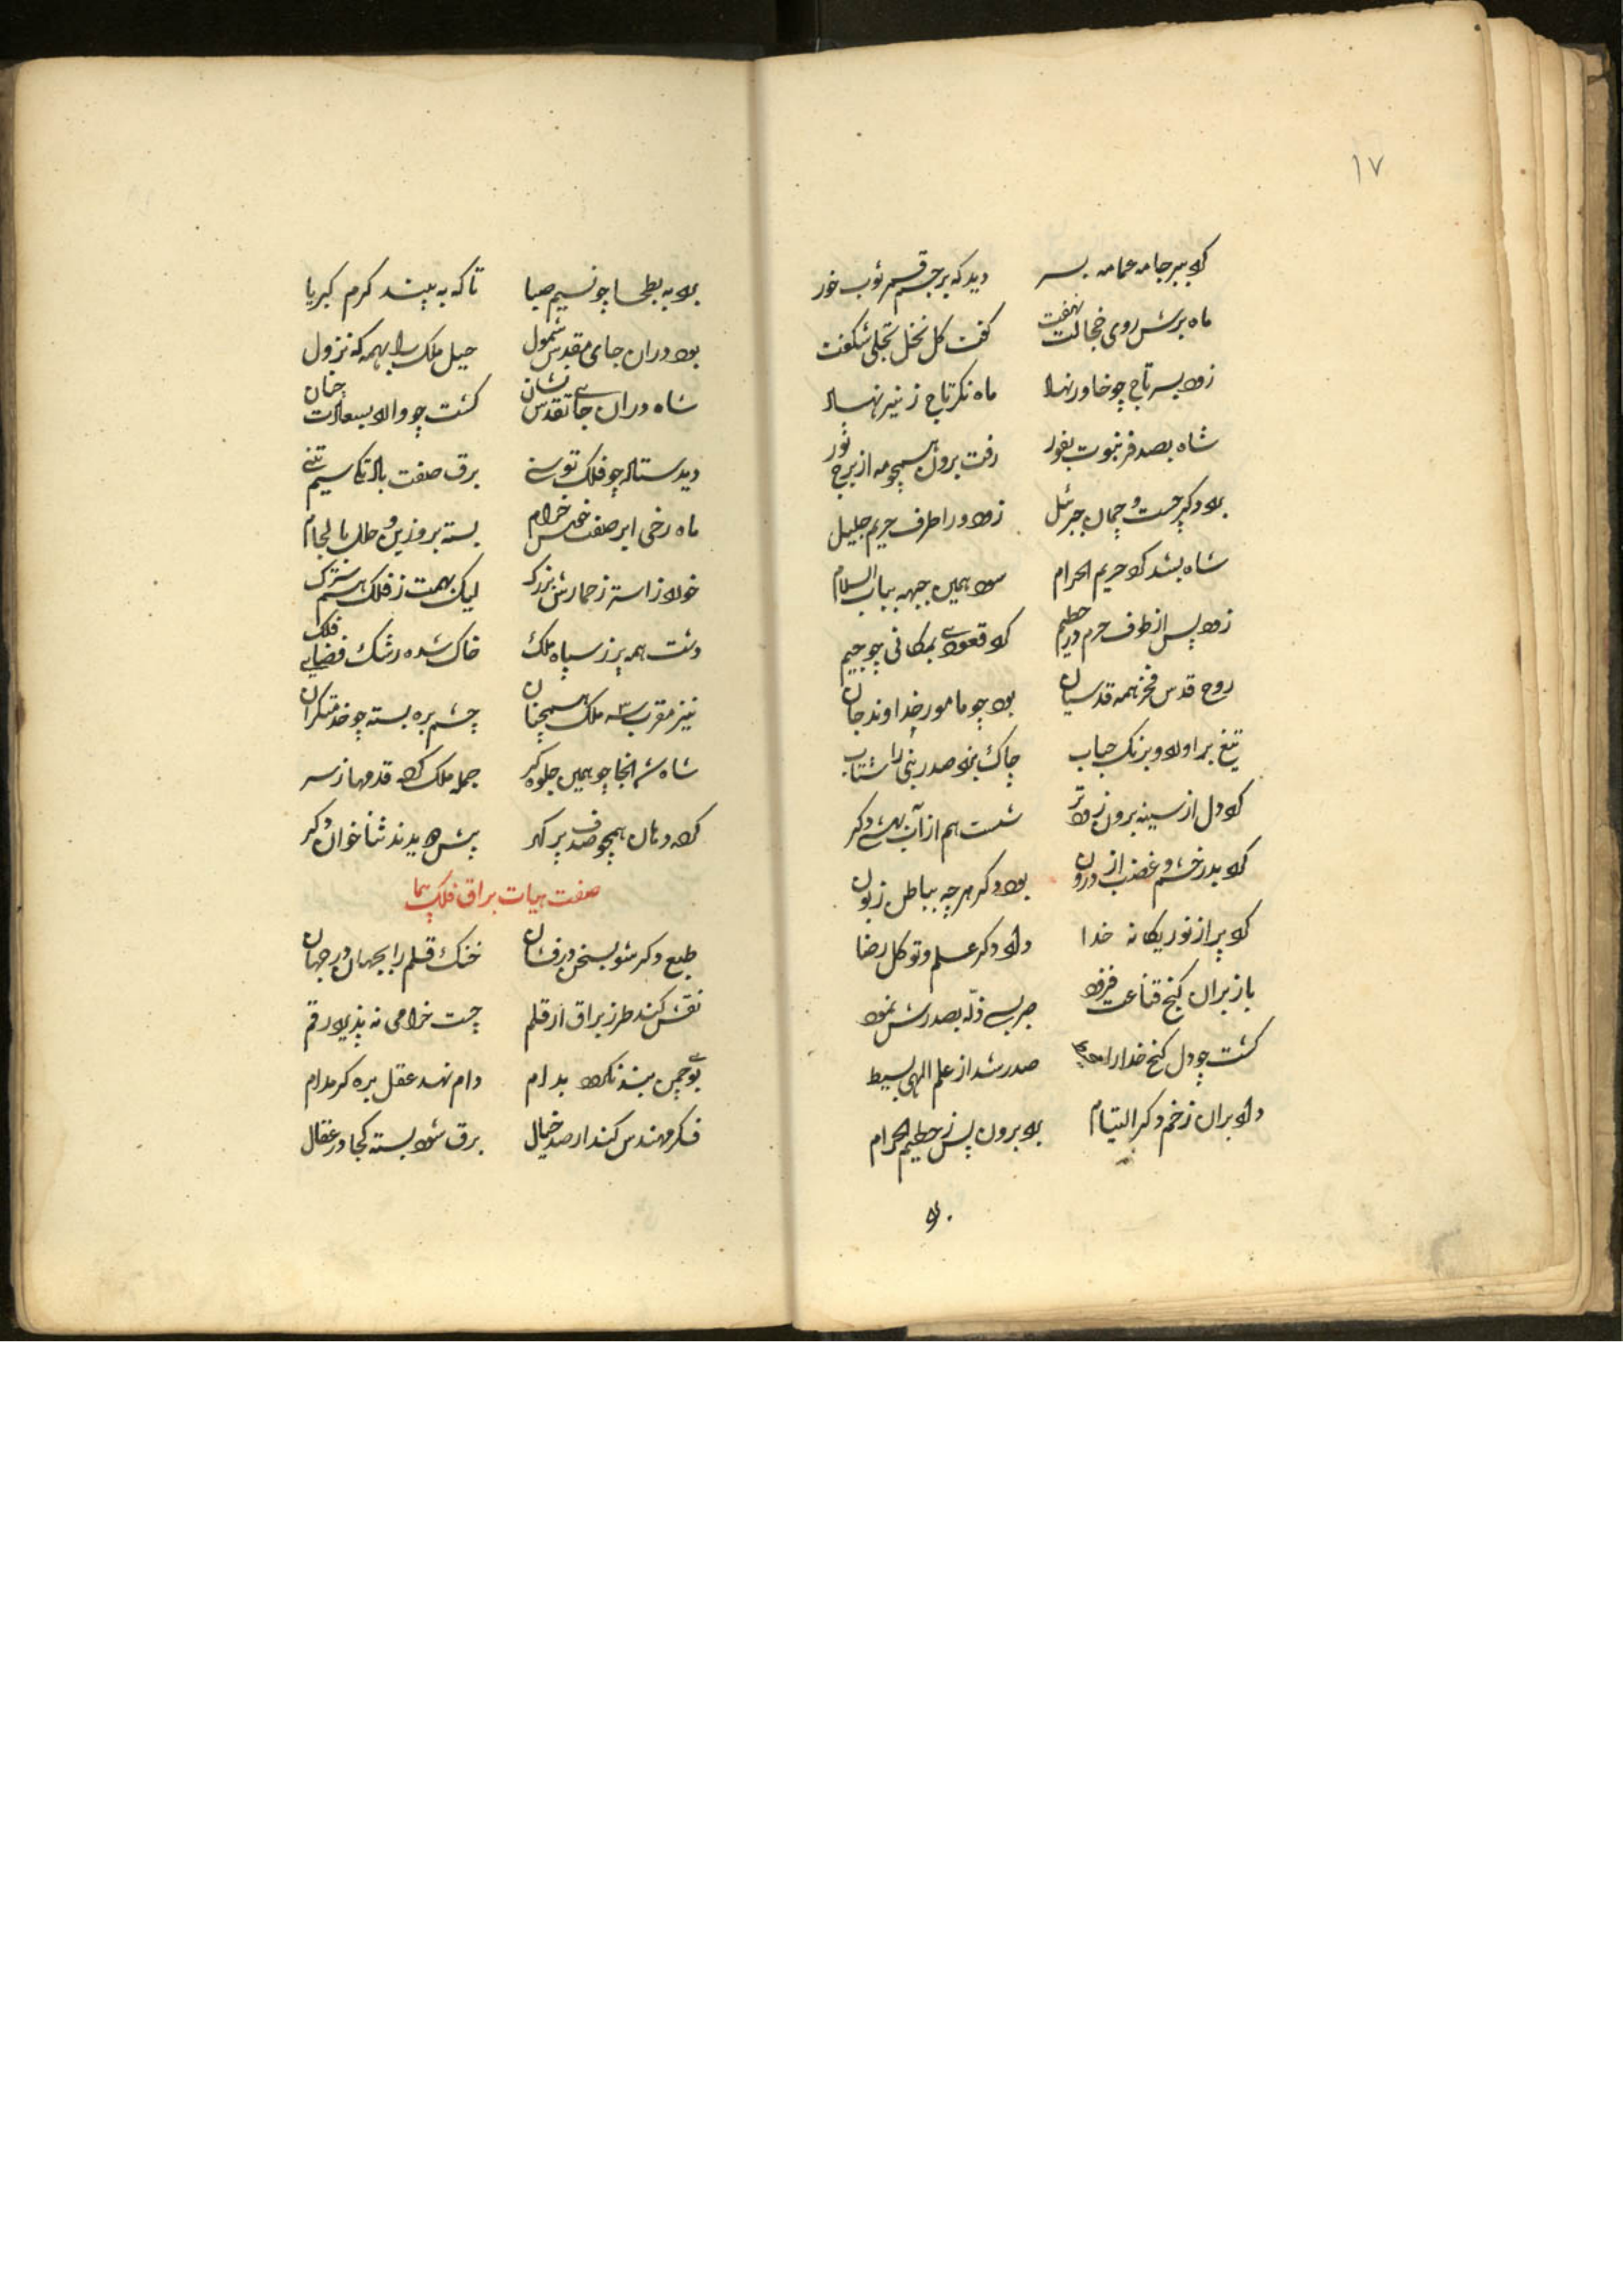 ۱۷
کرد ببر جامه عمامه بسر دید که برجسم قمر ثوب خور
ماه برش روی خجالت نهفت گفت گل نخل تجلی شگفت
زود بسر تاج چو خاور نهاد ماه نگر تاج ز نیر نهاد
شاه بصد فر نبوت بفور رفت برون همچو مه از برج ثور
برد دگر چست و چمان جبرئل زود ورا طرف حریم جلیل
شاه بشد گرد حریم الحرام سود همین جبهه بباب السلام
زود پس از طوف حرم در حطیم کرد قعودی بمکانی چو جیم
روح قدس فخر همه قدسیان بود چو مامور خداوند جان
تیغ بر آورد و برنگ حباب چاک نمود صدر نبی را شتاب
کرد دل از سینه برون زودتر شست هم از آب بهشتی دگر
کرد بدر خشم و غضب از درون بود دگر هرچه بباطن زبون
کرد پر از نور یگانه خدا داد دگر علم و توکل رضا
باز بران گنج قناعت فزود جربی ذله بصدرش نمود
گشت چو دل گنج خدا را صدر شد از علم الهی بسیط
داد بران زخم دگر التیام برد برون پس ز حطیم الحرام
برد
برد به بطحا چو نسیم صبا تا که به بیند کرم کبریا
بود دران جای مقدس شمول خیل ملک را بهمه که نزول
شاه دران جای تقدس نشان گشت چو وارد بسعادت چنان
دید ستاده چو فلک توسنی برق صفت باد تگ سیم تنی
ماه رخی ابر صفت خوش خرام بسته برو زین و حلل با لجام
خورد ز استر ز حمارش بزرگ لیک بهمت ز فلک هم سترک
دشت همه پر ز سپاه ملک خاک شده رشک فضای فلک
نیز مقرب سه ملک همچنان چشم بره بسته چو خدمتگران
شاه شد انجا چو همین جلوه گر جمله ملک کرد قدمها ز سر
کرد دهان همچو صدف پر گهر پیش دویدند ثنا خوان دگر
صفت هیات براق فلک پیما
طبع دگر شو بسخن در فشان خنگ قلم را بجهان در جهان
نقش کند طرز براق ار قلم چست خرامی نه پذیرد رقم
بوی چمن بند نگردد بدام دام نهد عقل بره گر مدام
فکر مهندس کند ار صد خیال برق شود بسته کجا در عقال